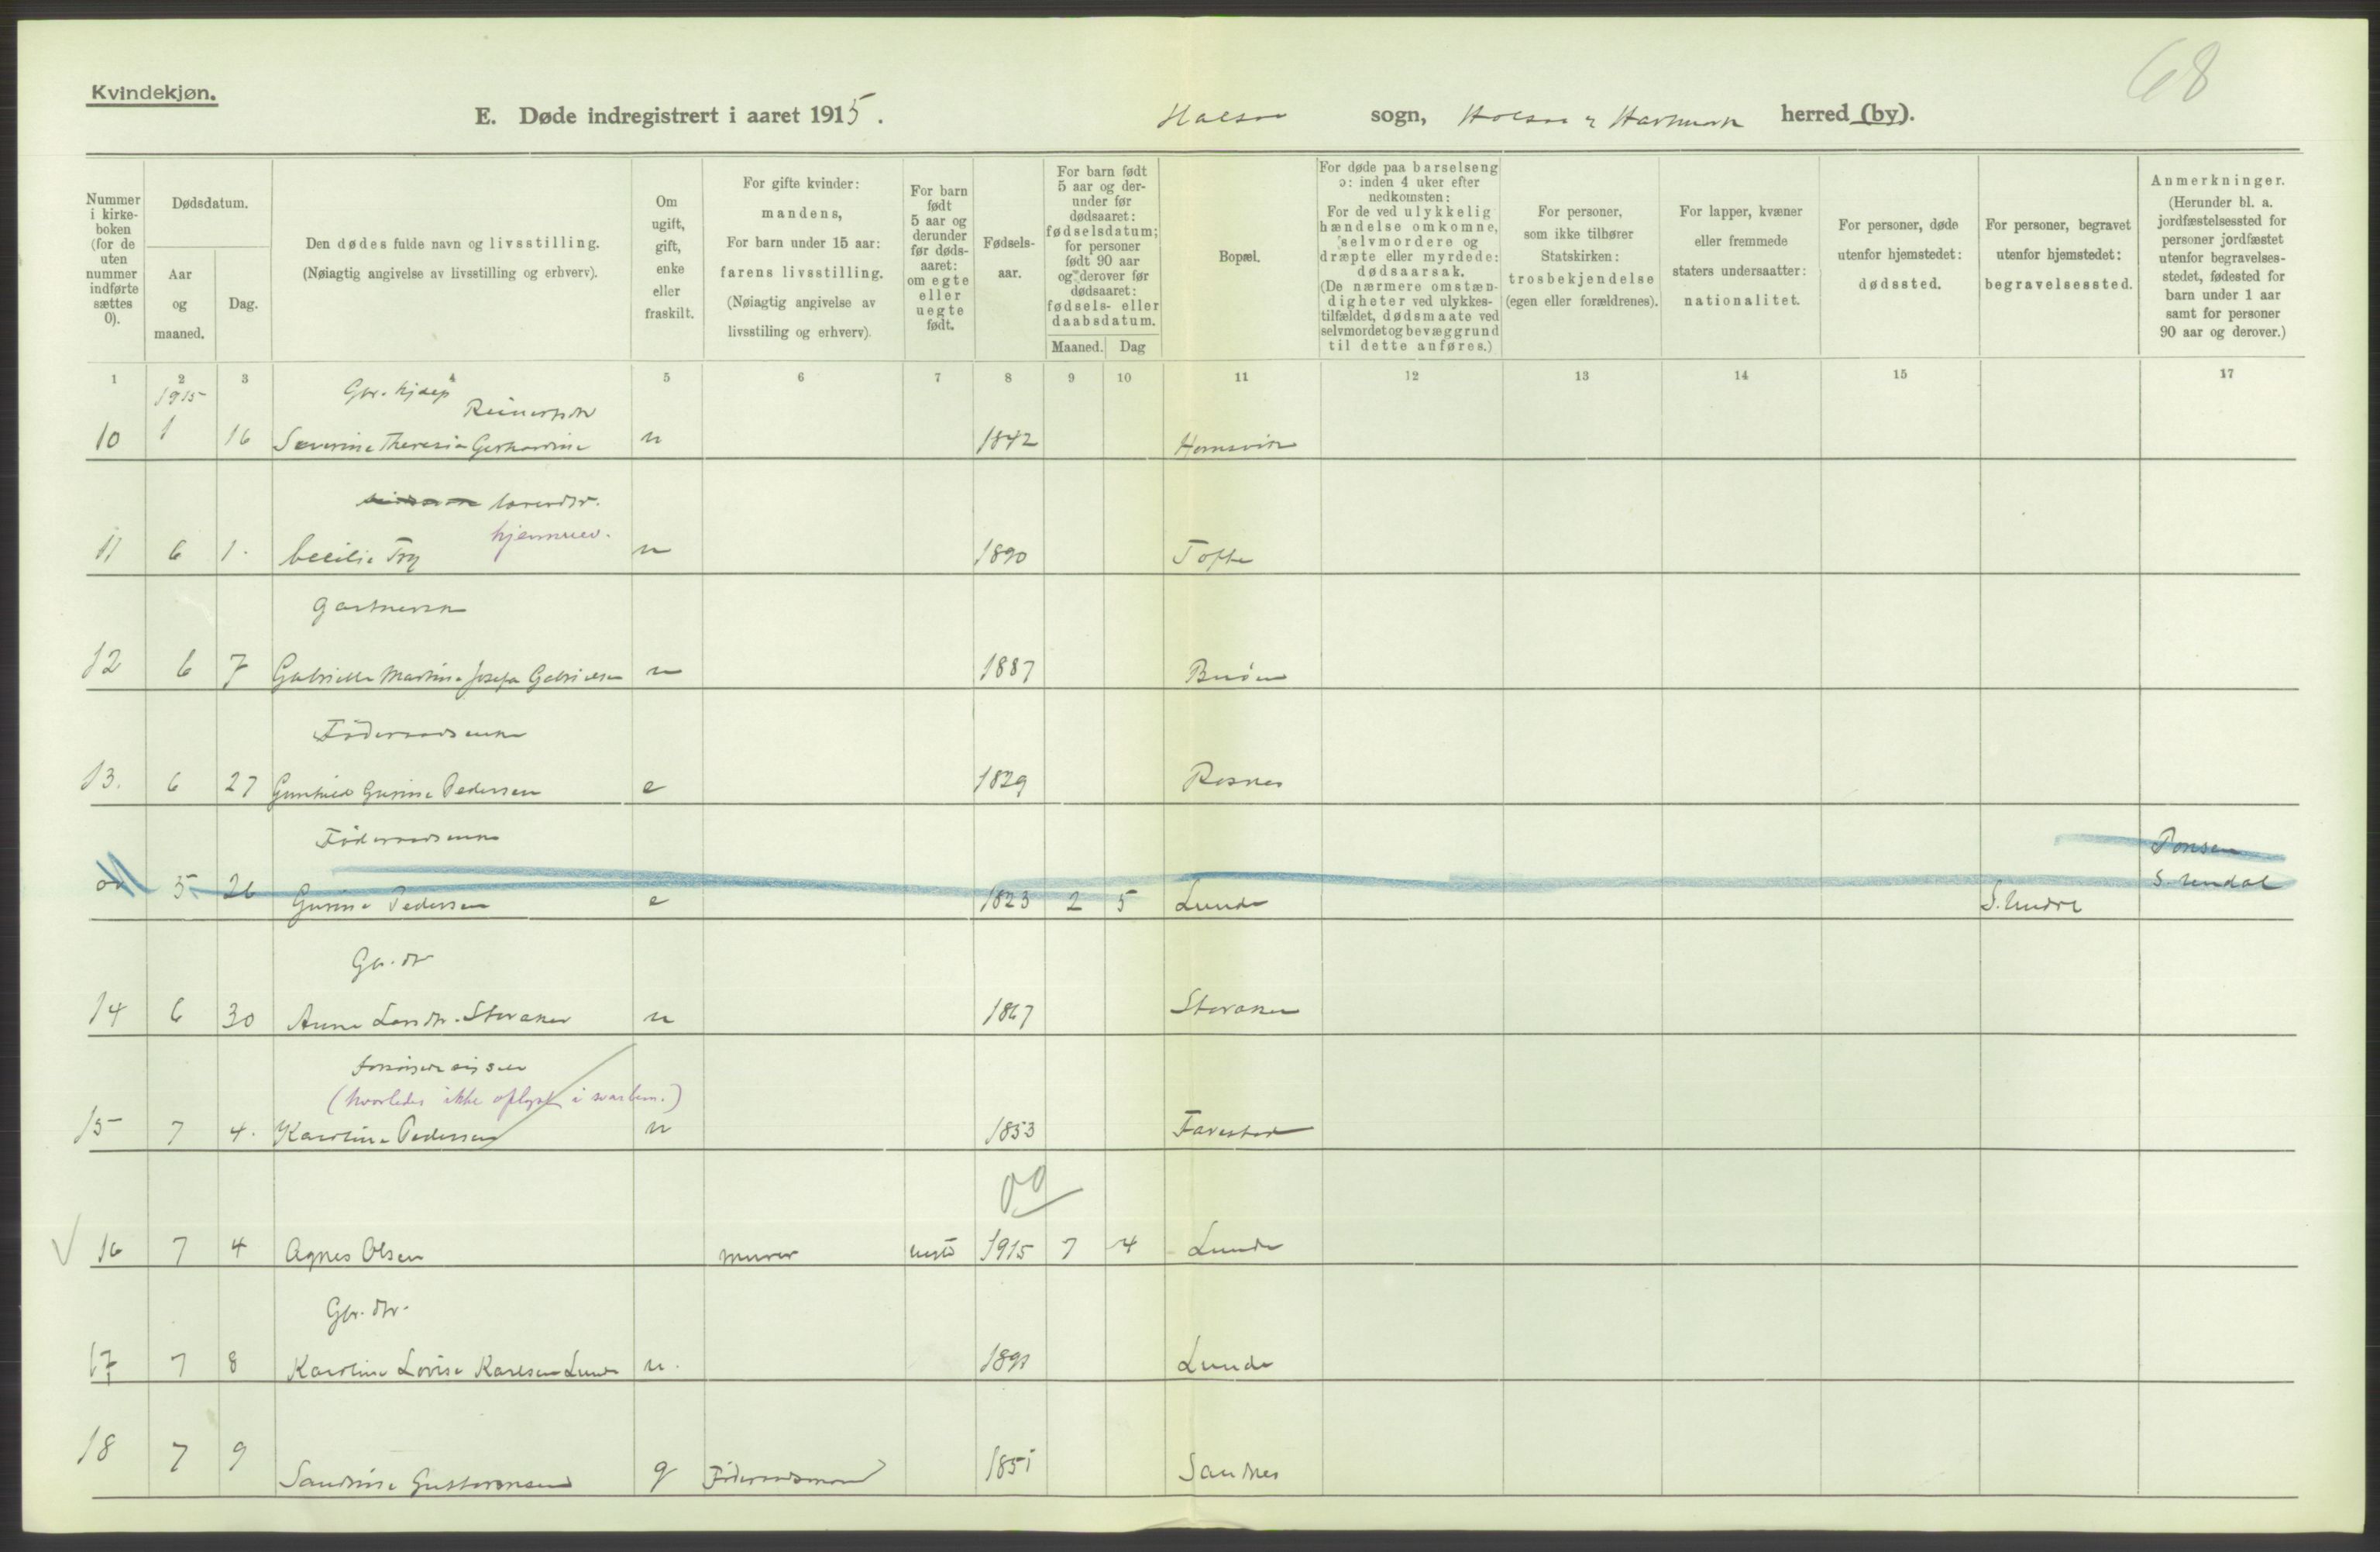 68
Kvindekjøn.
E. Døde indregistrert i aaret 1915. Halsaa sogn, Halsaa & Hartmark herred (by).
Nummer i kirkeboken (for de uten nummer indførte sættes 0).
Dødsdatum.
Aar og maaned.
Dag.
Den dødes fulde navn og livsstilling.
(Nøiagtig angivelse av livsstilling og erhverv).
Om ugift, gift, enke eller fraskilt.
For gifte kvinder: mandens,
For barn under 15 aar: farens livsstilling.
(Nøiagtig angivelse av livsstiling og erhverv).
For barn født 5 aar og derunder før dødsaaret: om egte eller uegte født.
Fødselsaar.
For barn født 5 aar og derunder før dødsaaret: fødselsdatum; for personer født 90 aar og derover før dødsaaret: fødsels- eller daabsdatum.
Maaned. Dag
Bopæl.
For døde paa barselseng ɔ: inden 4 uker efter nedkomsten:
For de ved ulykkelig hændelse omkomne, selvmordere og dræpte eller myrdede: dødsaarsak.
(De nærmere omstændigheter ved ulykkestilfældet, dødsmaate ved selvmordet og bevæggrund til dette anføres.)
For personer, som ikke tilhører Statskirken: trosbekjendelse (egen eller forældrenes).
For lapper, kvæner eller fremmede staters undersaatter: nationalitet.
For personer, døde utenfor hjemstedet: dødssted.
For personer, begravet utenfor hjemstedet: begravelsessted.
Anmerkninger.
(Herunder bl. a. jordfæstelsessted for personer jordfæstet utenfor begravelsesstedet, fødested for barn under 1 aar samt for personer 90 aar og derover.)
1 2 3 4 5 6 7 8 9 10 11 12 13 14 15 17
1915 Gbr. hjelp Reinertsdtr
10 1 16 Severine Theresia Gerhardine u 1842 Homsvik
lærerdtr.
hjemmev.
11 6 1. Cecilie Try u 1890 Tofte
Gartnerske
12 6 7 Gabrielle Martine Josefa Gabrielsen u 1887 Buøen
Føderaadsenke
13. 6 27 Gunhild Gurine Pedersen e 1829 Rosnes
Føderaadsenke
5 26 Gurine Pedersen e 1823 2 5 Lunde S. Undal
S. Undal
Gbr. dtr
14 6 30 Anne Larsdtr. Storaker u 1867 Storaker
Forsørget sig selv
(hvorledes ikke oplyst i svarbem.)
15 7 4. Karoline Pedersen u 1853 Farestad
16 7 4 Agnes Olsen murer uegte 1915 7 4 Lunde
Gbr. dtr.
17 7 8 Karoline Lovise Karlsen Lunde u. Lunde
18 7 9 Sandrine Gustavensen g Føderaadsmand 1851 Sandnes